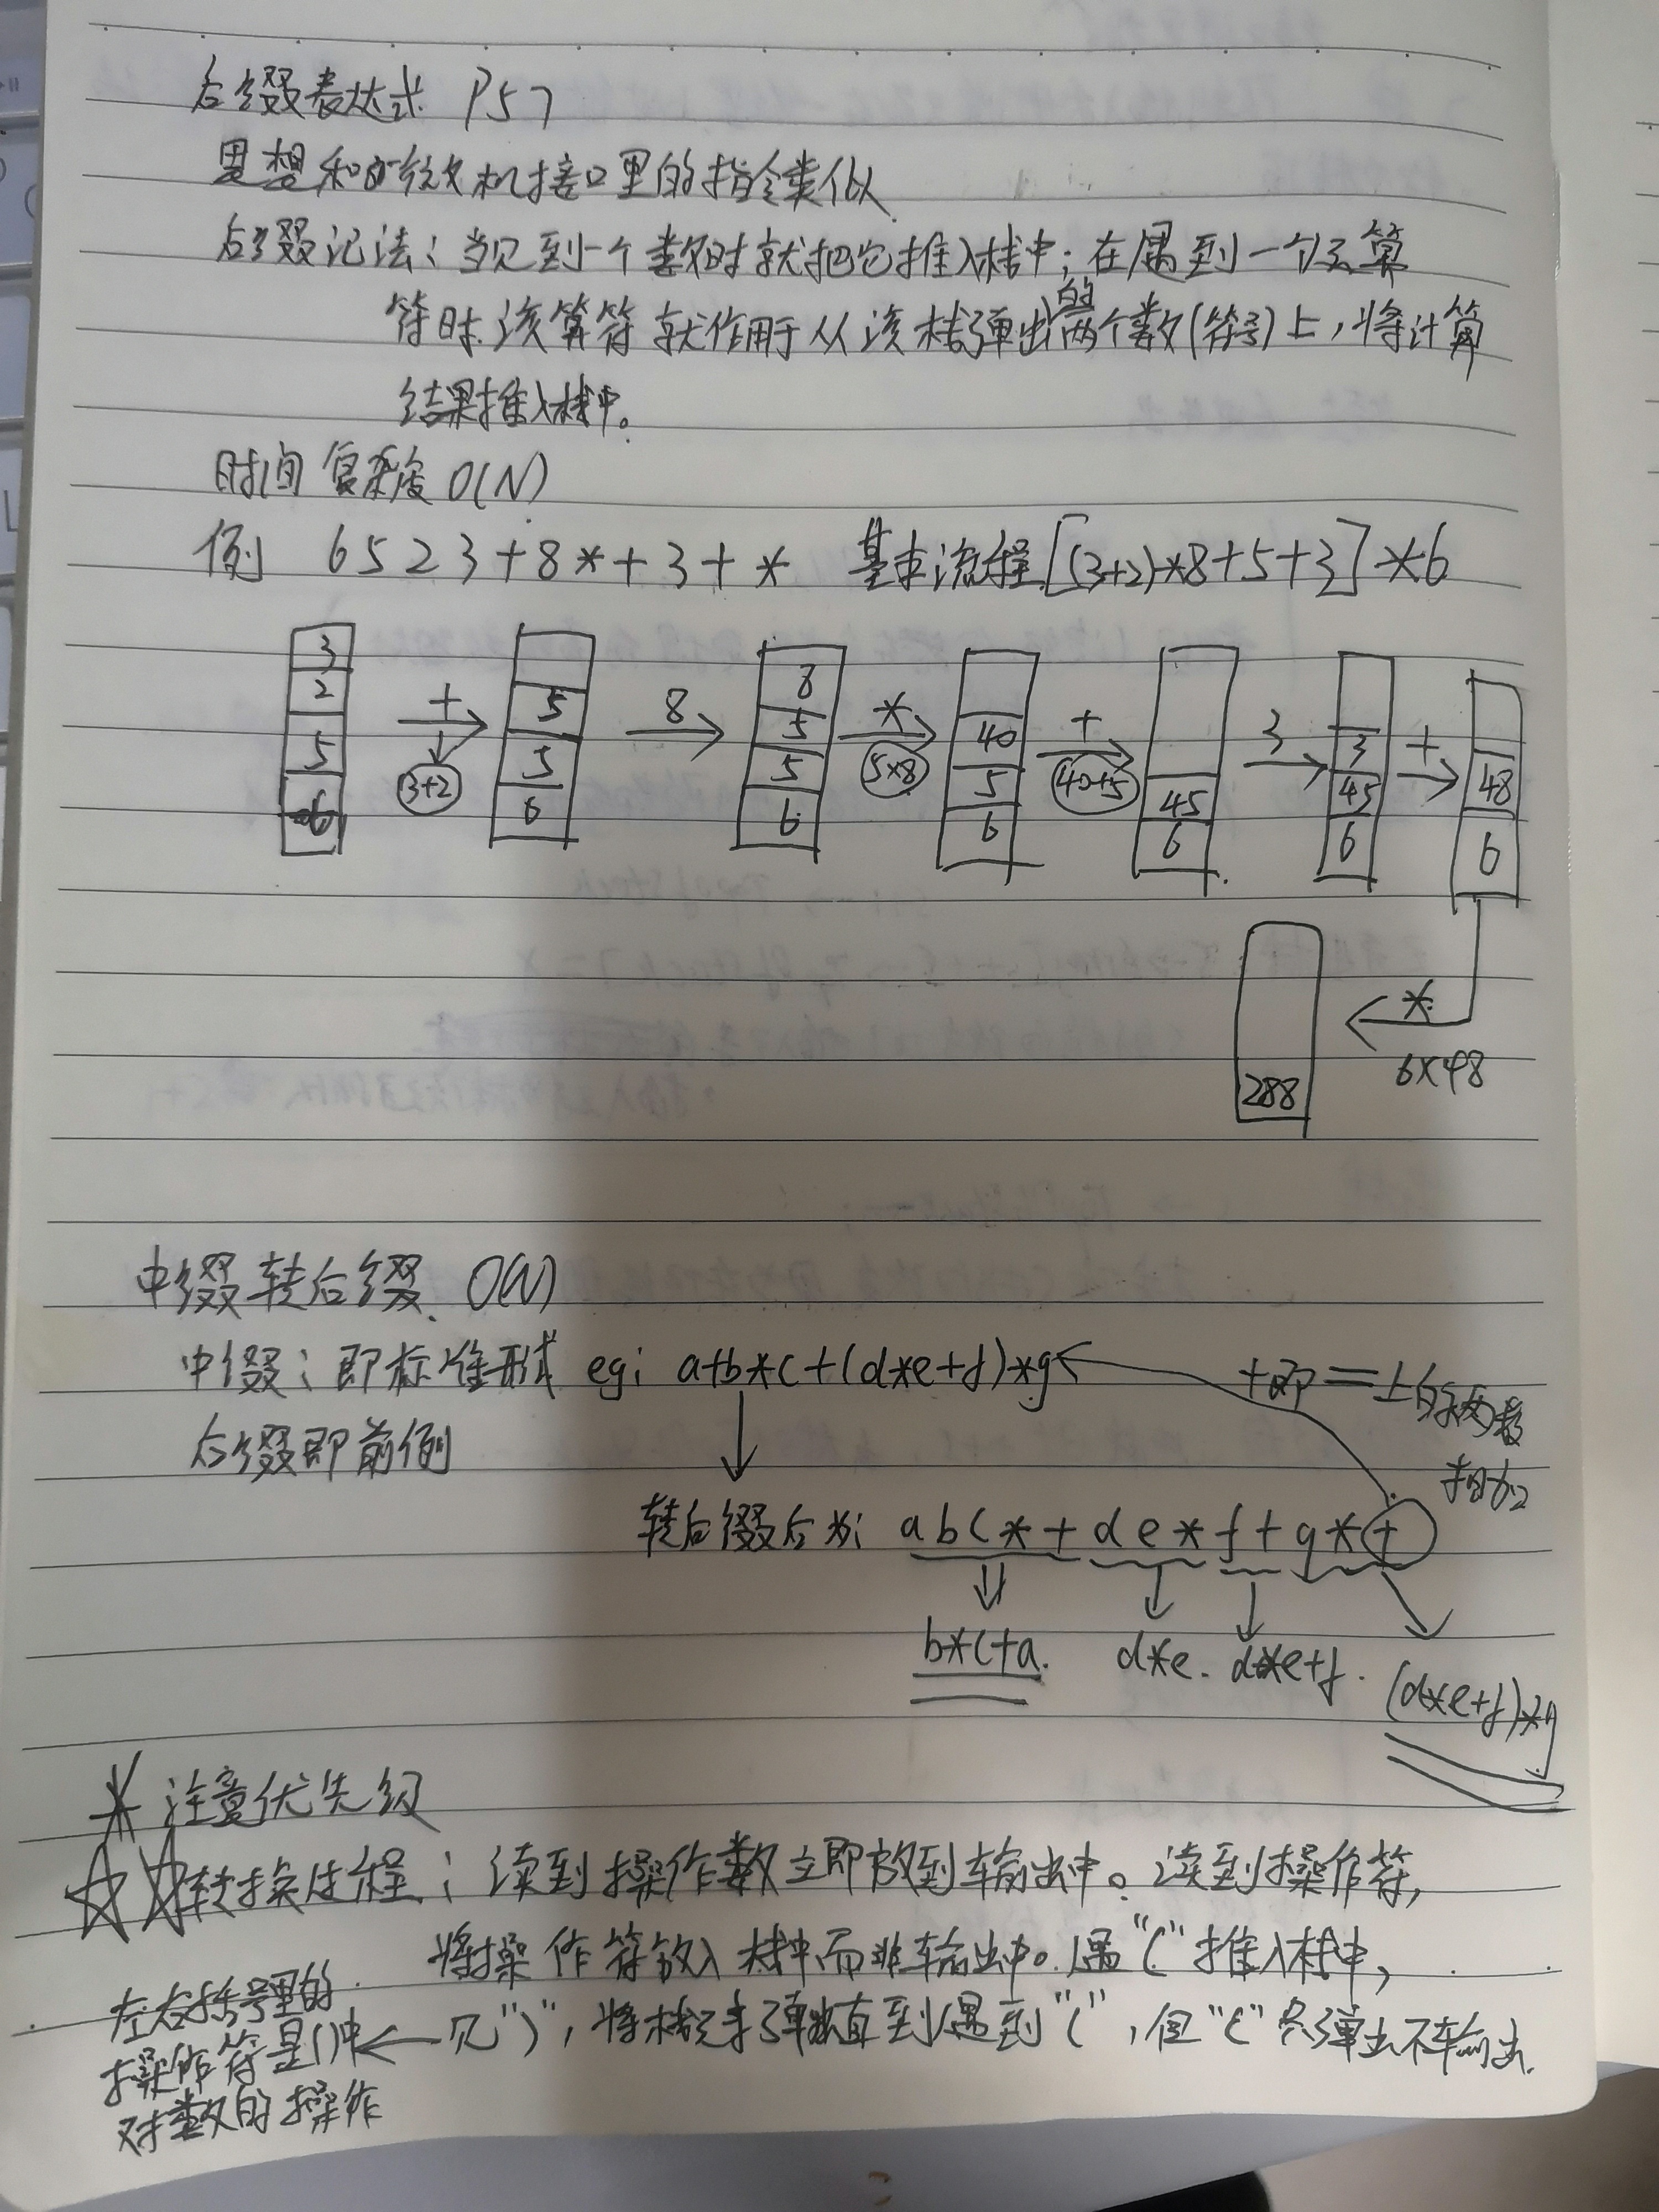 后缀表达式 P57
思想和微机接口里的指令类似
后缀记法：当见到一个数时就把它推入栈中；在遇到一个运算
符时该算符就作用于从该栈弹出的两个数(符号)上，将计算
结果推入栈中。
时间复杂度 O(N)
例 6 5 2 3 + 8 * + 3 + * 基本流程[(3+2)*8+5+3]*6
3 2 5 6
+ 3+2
5 5 6
8
8 5 5 6
* 5×8
40 5 6
+ 40+5
45 6
3
3 45 6
+
48 6
* 6×48
288
中缀转后缀 O(N)
中缀：即标准形式 eg: a+b*c+(d*e+f)*g
+即=上的两数
相加
后缀即前例
转后缀后为: a b c * + d e * f + g * +
b*c+a. d*e. d*e+f. (d*e+f)*g
* 注意优先级
☆☆转换过程：读到操作数立即放到输出中。读到操作符，
将操作符放入栈中而非输出中。遇"("推入栈中，
见")"，将栈元素弹出直到遇到"("，但"("只弹出不输出.
左右括号里的
操作符是()中
对数的操作